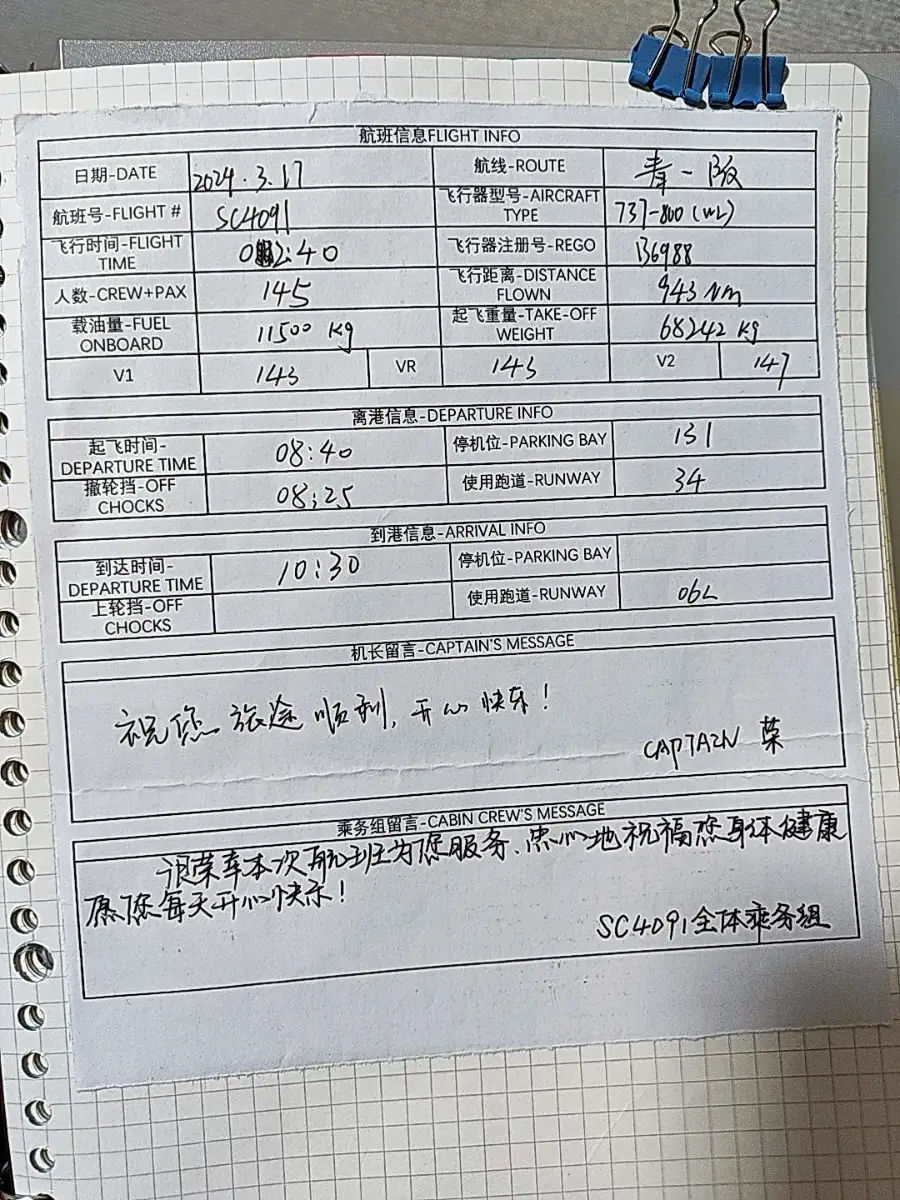 航班信息FLIGHT INFO
日期-DATE 2024.3.17 航线-ROUTE 青-
航班号-FLIGHT # SC4091 飞行器型号-AIRCRAFT TYPE 737-800 (WL)
飞行时间-FLIGHT TIME 02:40 飞行器注册号-REGO B6988
人数-CREW+PAX 145 飞行距离-DISTANCE FLOWN 943 Nm
载油量-FUEL ONBOARD 11500 kg 起飞重量-TAKE-OFF WEIGHT 68242 kg
V1 143 VR 143 V2 147
离港信息-DEPARTURE INFO
起飞时间-DEPARTURE TIME 08:40 停机位-PARKING BAY 131
撤轮挡-OFF CHOCKS 08:25 使用跑道-RUNWAY 34
到港信息-ARRIVAL INFO
到达时间-DEPARTURE TIME 10:30 停机位-PARKING BAY
上轮挡-OFF CHOCKS 使用跑道-RUNWAY 06L
机长留言-CAPTAIN'S MESSAGE
祝您旅途顺利,开心快乐!
CAPTAIN 荣
乘务组留言-CABIN CREW'S MESSAGE
很荣幸本次航班为您服务、忠心地祝福您身体健康
愿您每天开心快乐!
SC4091全体乘务组